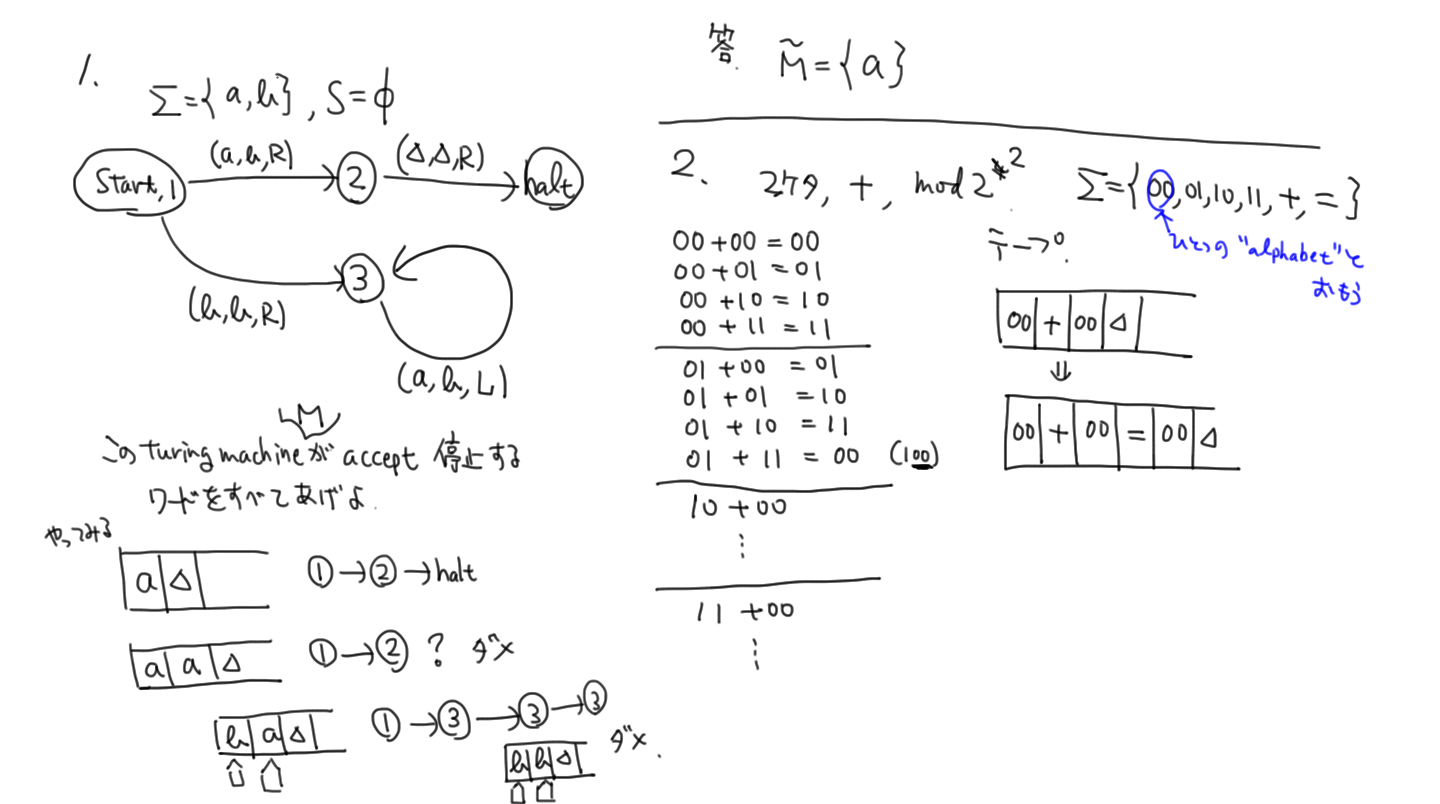 1.
Σ={a,b}, S=φ
(a,b,R) (Δ,Δ,R)
Start,1 2 halt
3
(b,b,R)
(a,b,L)
M
このTuring machineが accept 停止する
ワードをすべてあげよ.
やってみる
a Δ ①→②→halt
a a Δ ①→② ? ダメ
b a Δ ①→③→③→③
b b Δ ダメ.
答. M̃={a}
2. 2ケタ, +, mod 2² Σ={00,01,10,11,+,=}
ひとつの "alphabet"と
おもう
00+00=00
00+01=01
00+10=10
00+11=11
01+00=01
01+01=10
01+10=11
01+11=00 (100)
10+00
⋮
11+00
⋮
テープ.
00 + 00 Δ
⇓
00 + 00 = 00 Δ